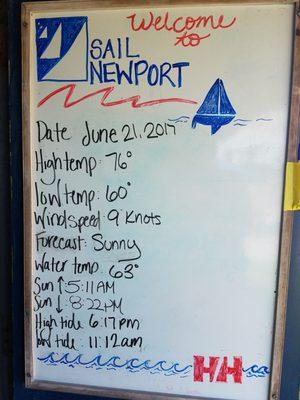 Welcome
to
SAIL
NEWPORT
Date: June 21, 2017
High temp: 76°
low temp: 60°
Windspeed: 9 Knots
Forecast: Sunny
Water temp: 63°
Sun ↑: 5:11AM
Sun ↓: 8:22PM
High tide: 6:17pm
low tide: 11:12am
HH